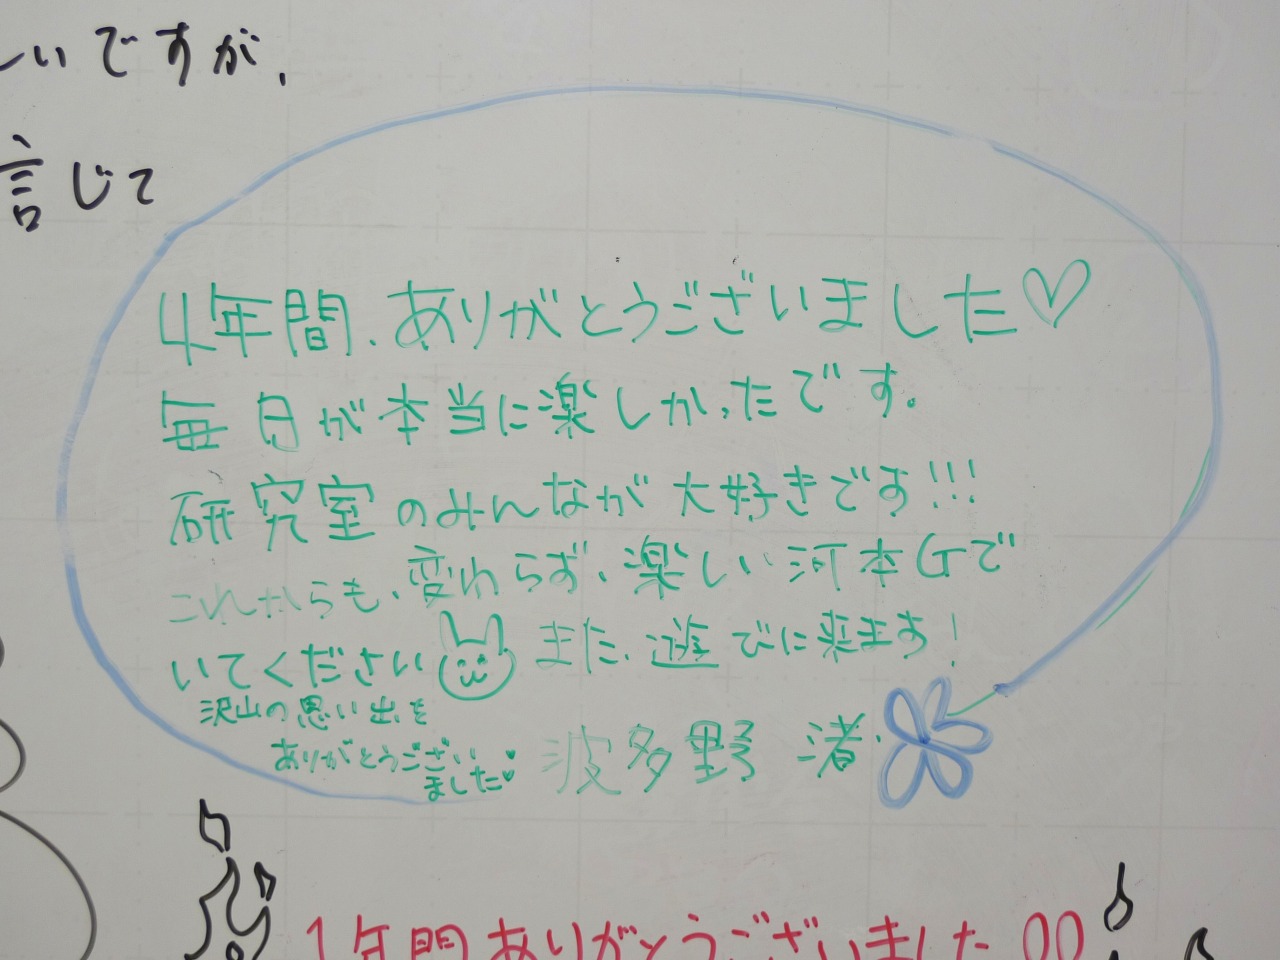 いですが、
信じて
4年間、ありがとうございました♡
毎日が本当に楽しかったです。
研究室のみんなが大好きです!!!
これからも、変わらず、楽しい河本Gで
いてください また、遊びに来ます!
沢山の思い出を
ありがとうござい
ました♥
波多野 渚
1年間ありがとうございました